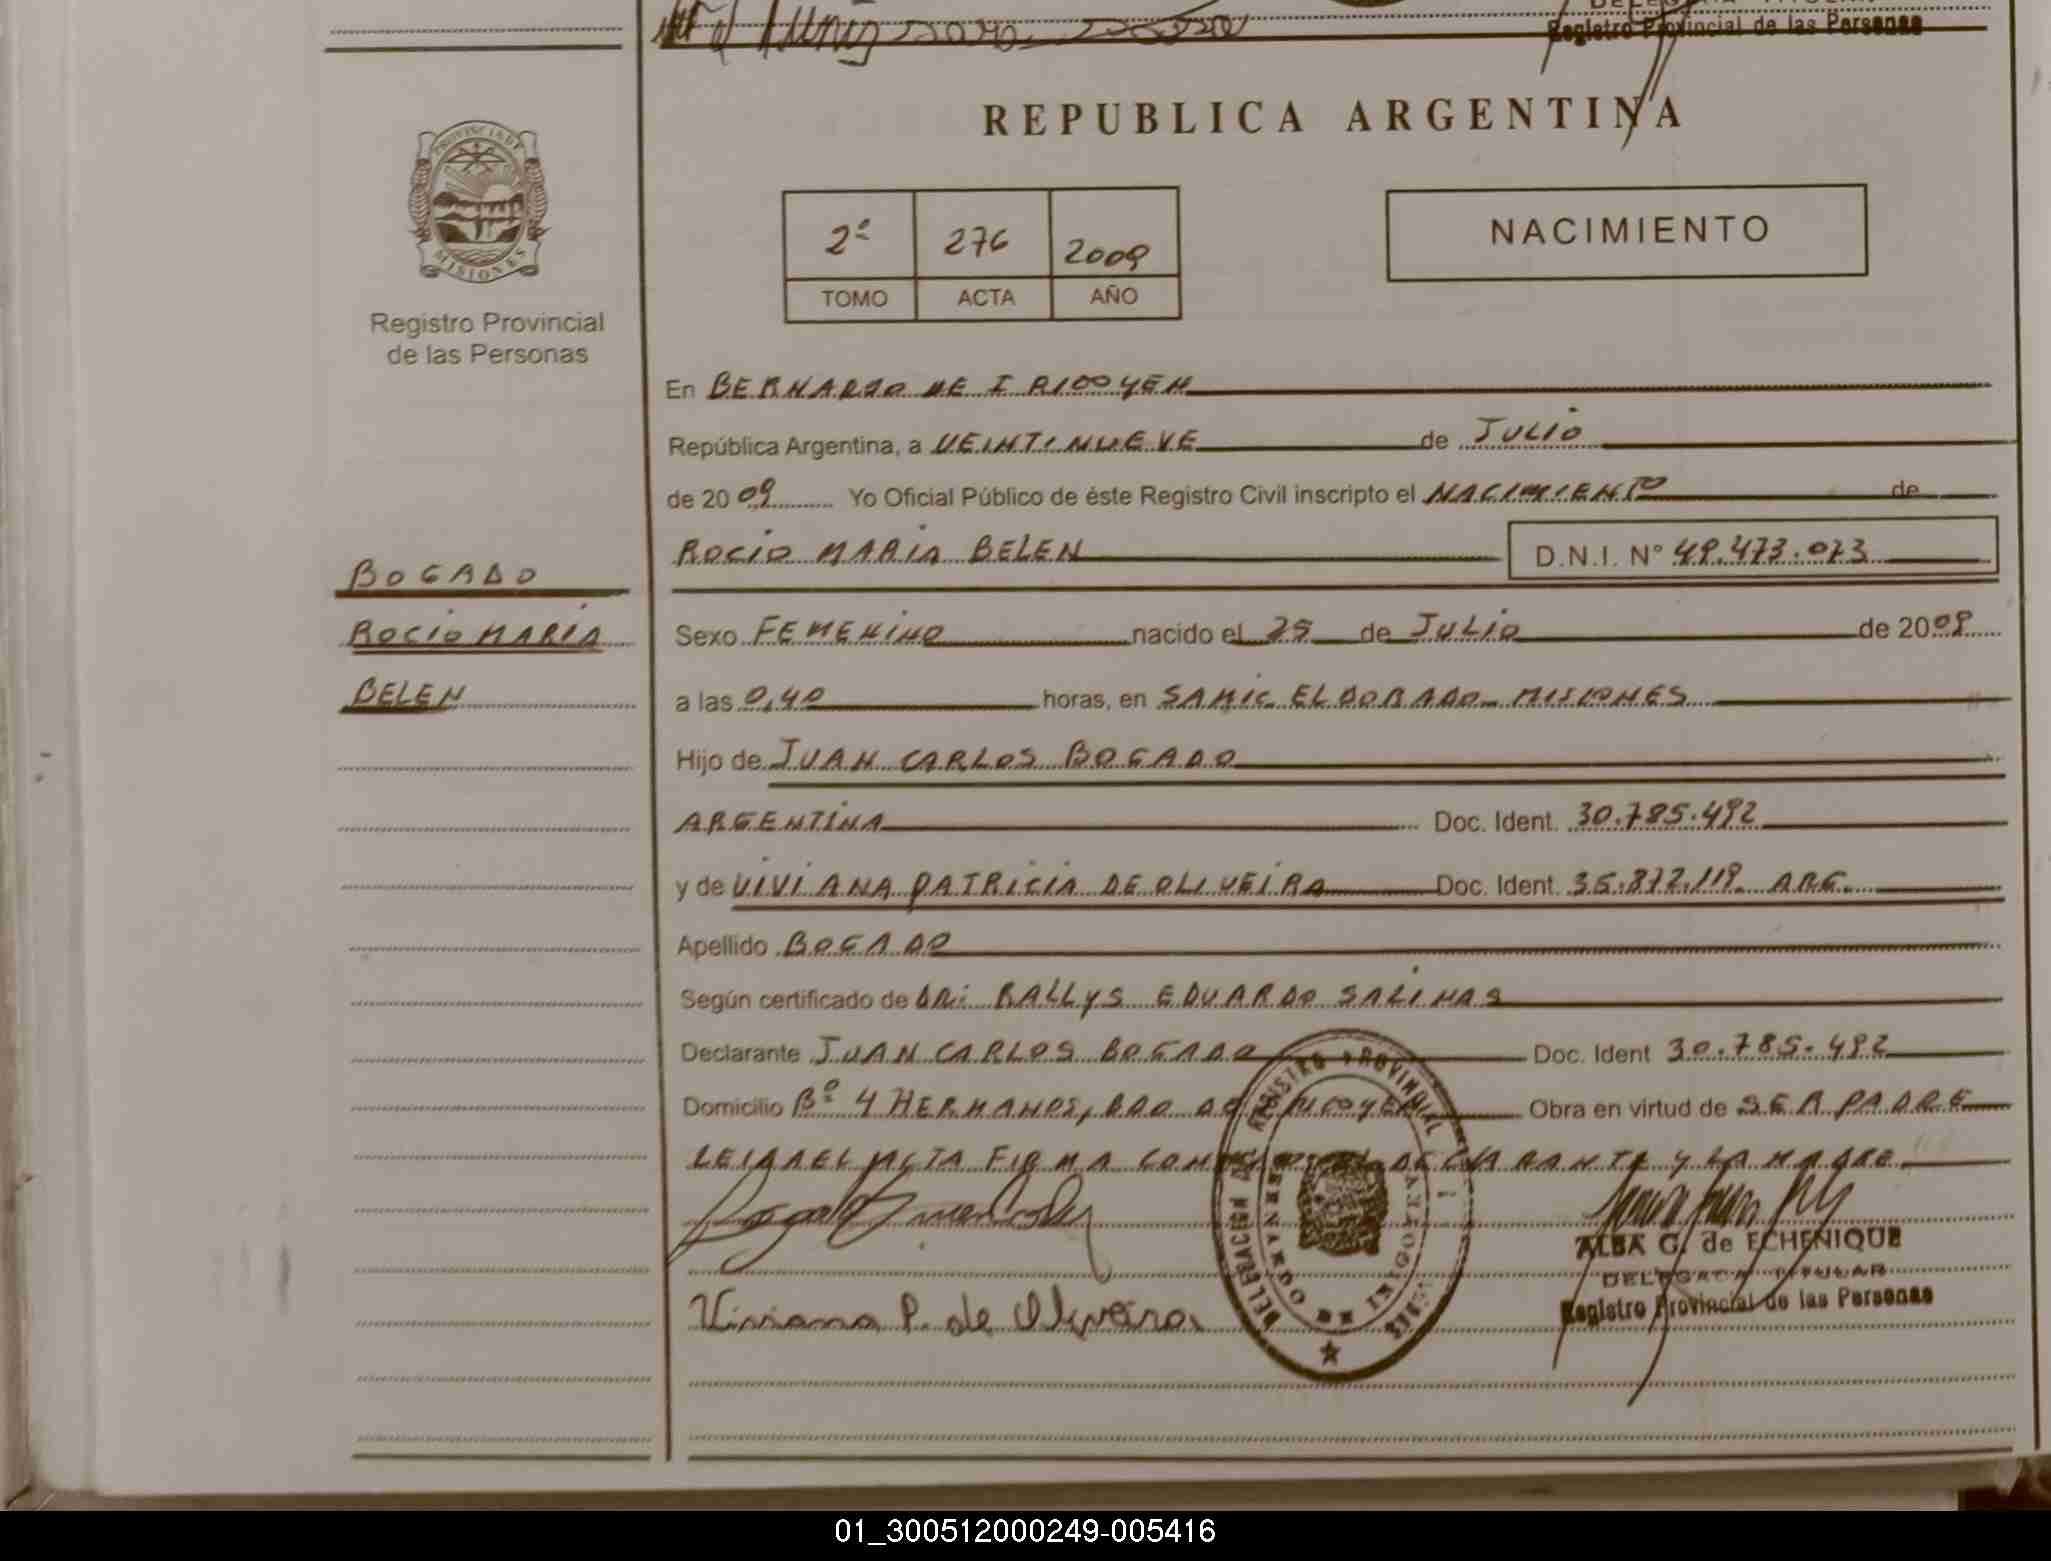 Registro Provincial de las Personas
REPUBLICA ARGENTINA
PROVINCIA DE
MISIONES
Registro Provincial
de las Personas
2º 276 2009
TOMO ACTA AÑO
NACIMIENTO
En BERNARDO DE IRIGOYEN
República Argentina, a VEINTINUEVE de JULIO
de 2009 Yo Oficial Público de éste Registro Civil inscripto el NACIMIENTO de
ROCIO MARIA BELEN D.N.I. Nº 49.473.073
BOGADO
ROCIO MARIA
BELEN
Sexo FEMENINO nacido el 25 de JULIO de 2009
a las 0,40 horas, en SAMIC ELDORADO MISIONES
Hijo de JUAN CARLOS BOGADO
ARGENTINA Doc. Ident. 30.785.492
y de VIVIANA PATRICIA DE OLIVEIRA Doc. Ident. 35.872.119 ARG.
Apellido BOGADO
Según certificado de DR: RALLYS EDUARDO SALINAS
Declarante JUAN CARLOS BOGADO Doc. Ident 30.785.492
Domicilio Bº 4 HERMANOS, BDO DE IRIGOYEN Obra en virtud de SER PADRE
LEIDA EL ACTA FIRMA CONMIGO EL DECLARANTE Y LA MADRE
DELEGACION DEL REGISTRO PROVINCIAL
BERNARDO DE IRIGOYEN
ALBA G. de ECHENIQUE
DELEGADA TITULAR
Registro Provincial de las Personas
Viviana P. de Oliveira
01_300512000249-005416